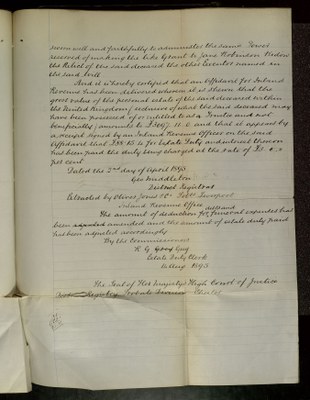 sworn well and faithfully to administer the same Power
reserved of making the like Grant to Jane Robinson Widow
the Relict of the said deceased the other Executor named in
the said Will
And it is hereby certified that an Affidavit for Inland
Revenue has been delivered wherein it is shewn that the
gross value of the personal estate of the said deceased within
the United Kingdom (exclusive of what the said deceased may
have been possessed of or entitled to as a Trustee and not
beneficially) amounts to and that it appears by
a receipt signed by an Inland Revenue Officer on the said
Affidavit that for Estate Duty and interest thereon
has been paid the duty being charged at the rate of
per cent
Dated the 2nd day of April 1895
Geo Middleton
District Registrar
Extracted by Oliver Jones Liverpool
Inland Revenue Office
The amount of deduction for funeral expenses has
been adjusted amended and the amount of estate duty paid
has been adjusted accordingly
By the Commissioners
Estate Duty Clerk
1895
The Seal of Her Majesty's High Court of Justice
District Registry Probate Division Chester